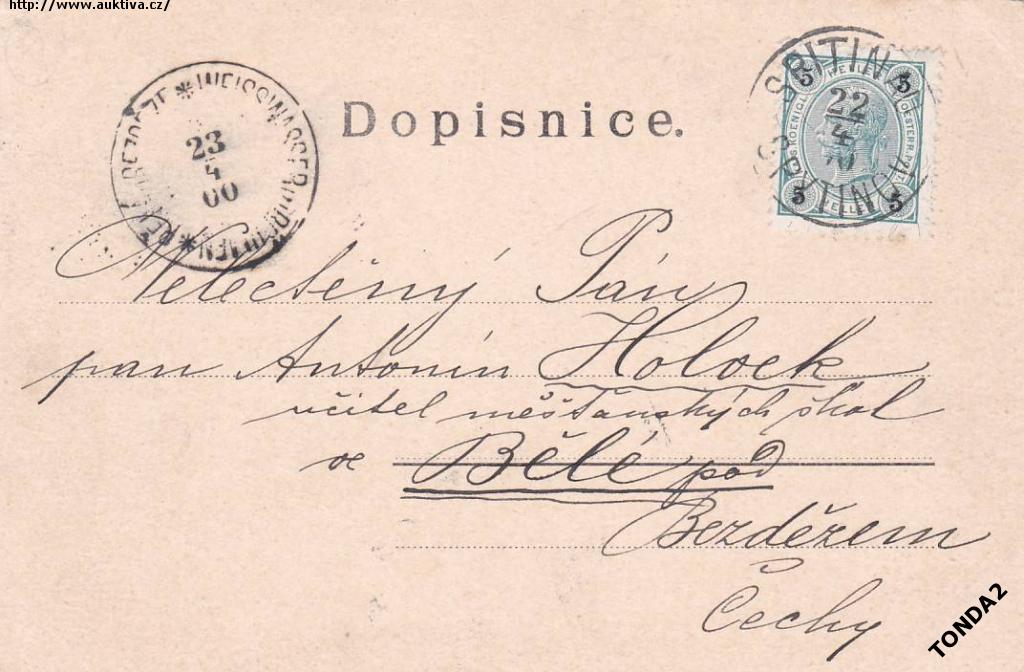 http://www.auktiva.cz/
Dopisnice.
WEISSWASSER
23
4
00
SPITINA
22
4
5
5
5
5
HELLER
HELLER
Velectěný Pán
pan Antonín Holoek
učitel měšťanských škol
ve Bělé pod
Bezdězem
Čechy
TONDA2